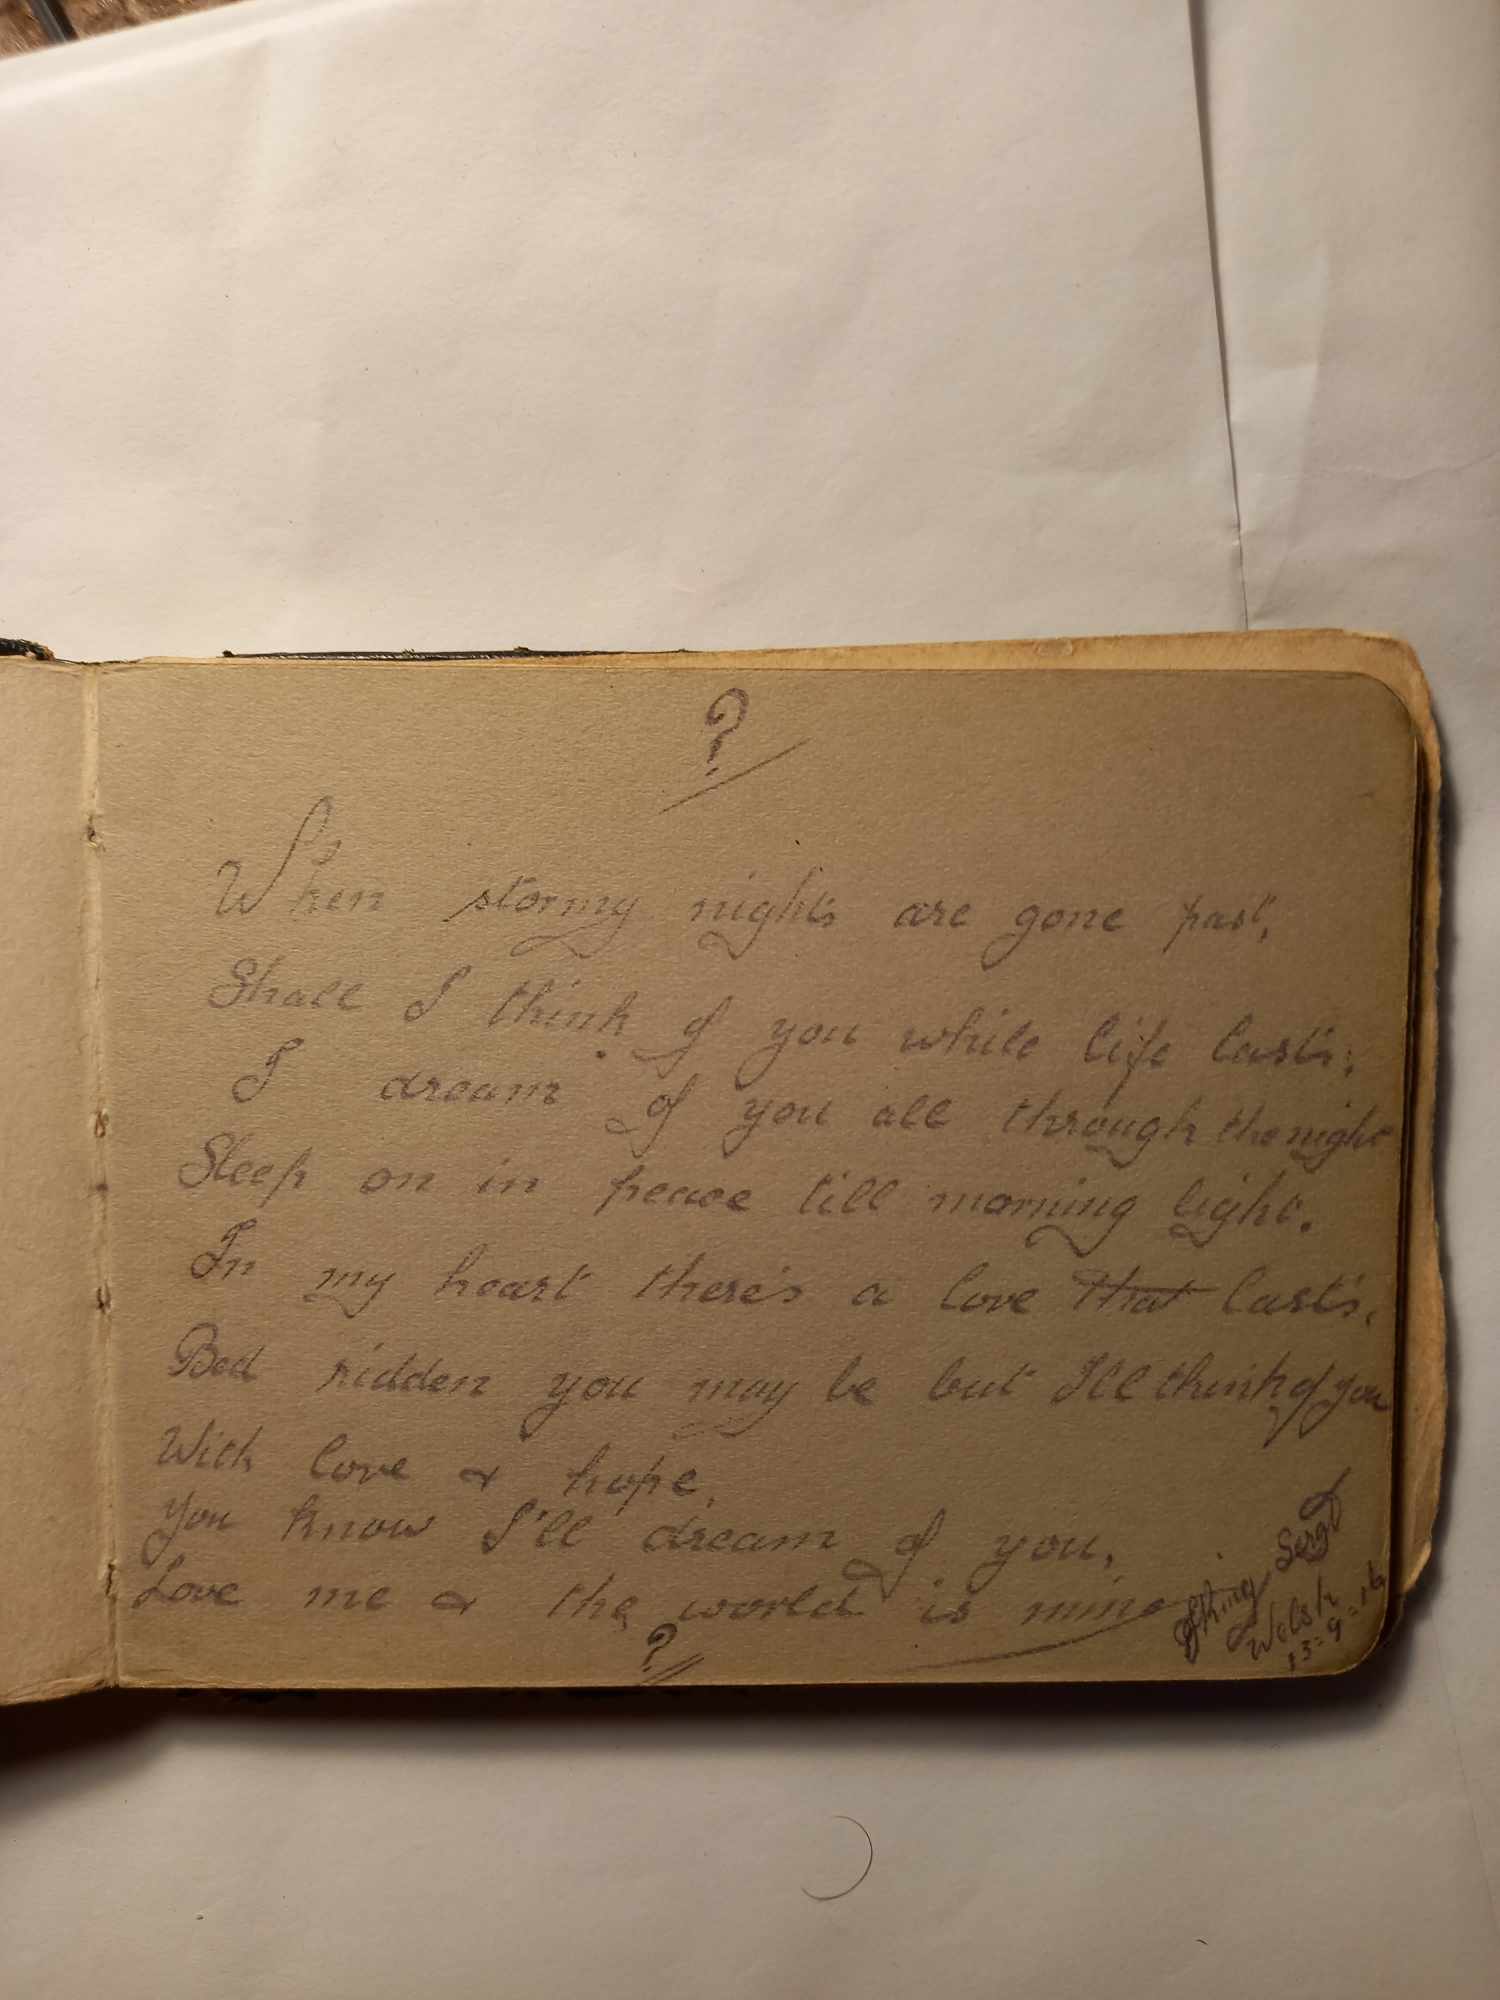 ?
When stormy nights are gone past,
Shall I think of you while life lasts;
I dream of you all through the night
Sleep on in peace till morning light.
In my heart there's a love that lasts,
Bed ridden you may be but I'll think of you
With love & hope,
You know I'll dream of you,
Love me & the world is mine
?
Sergt
Welsh
13=9=16